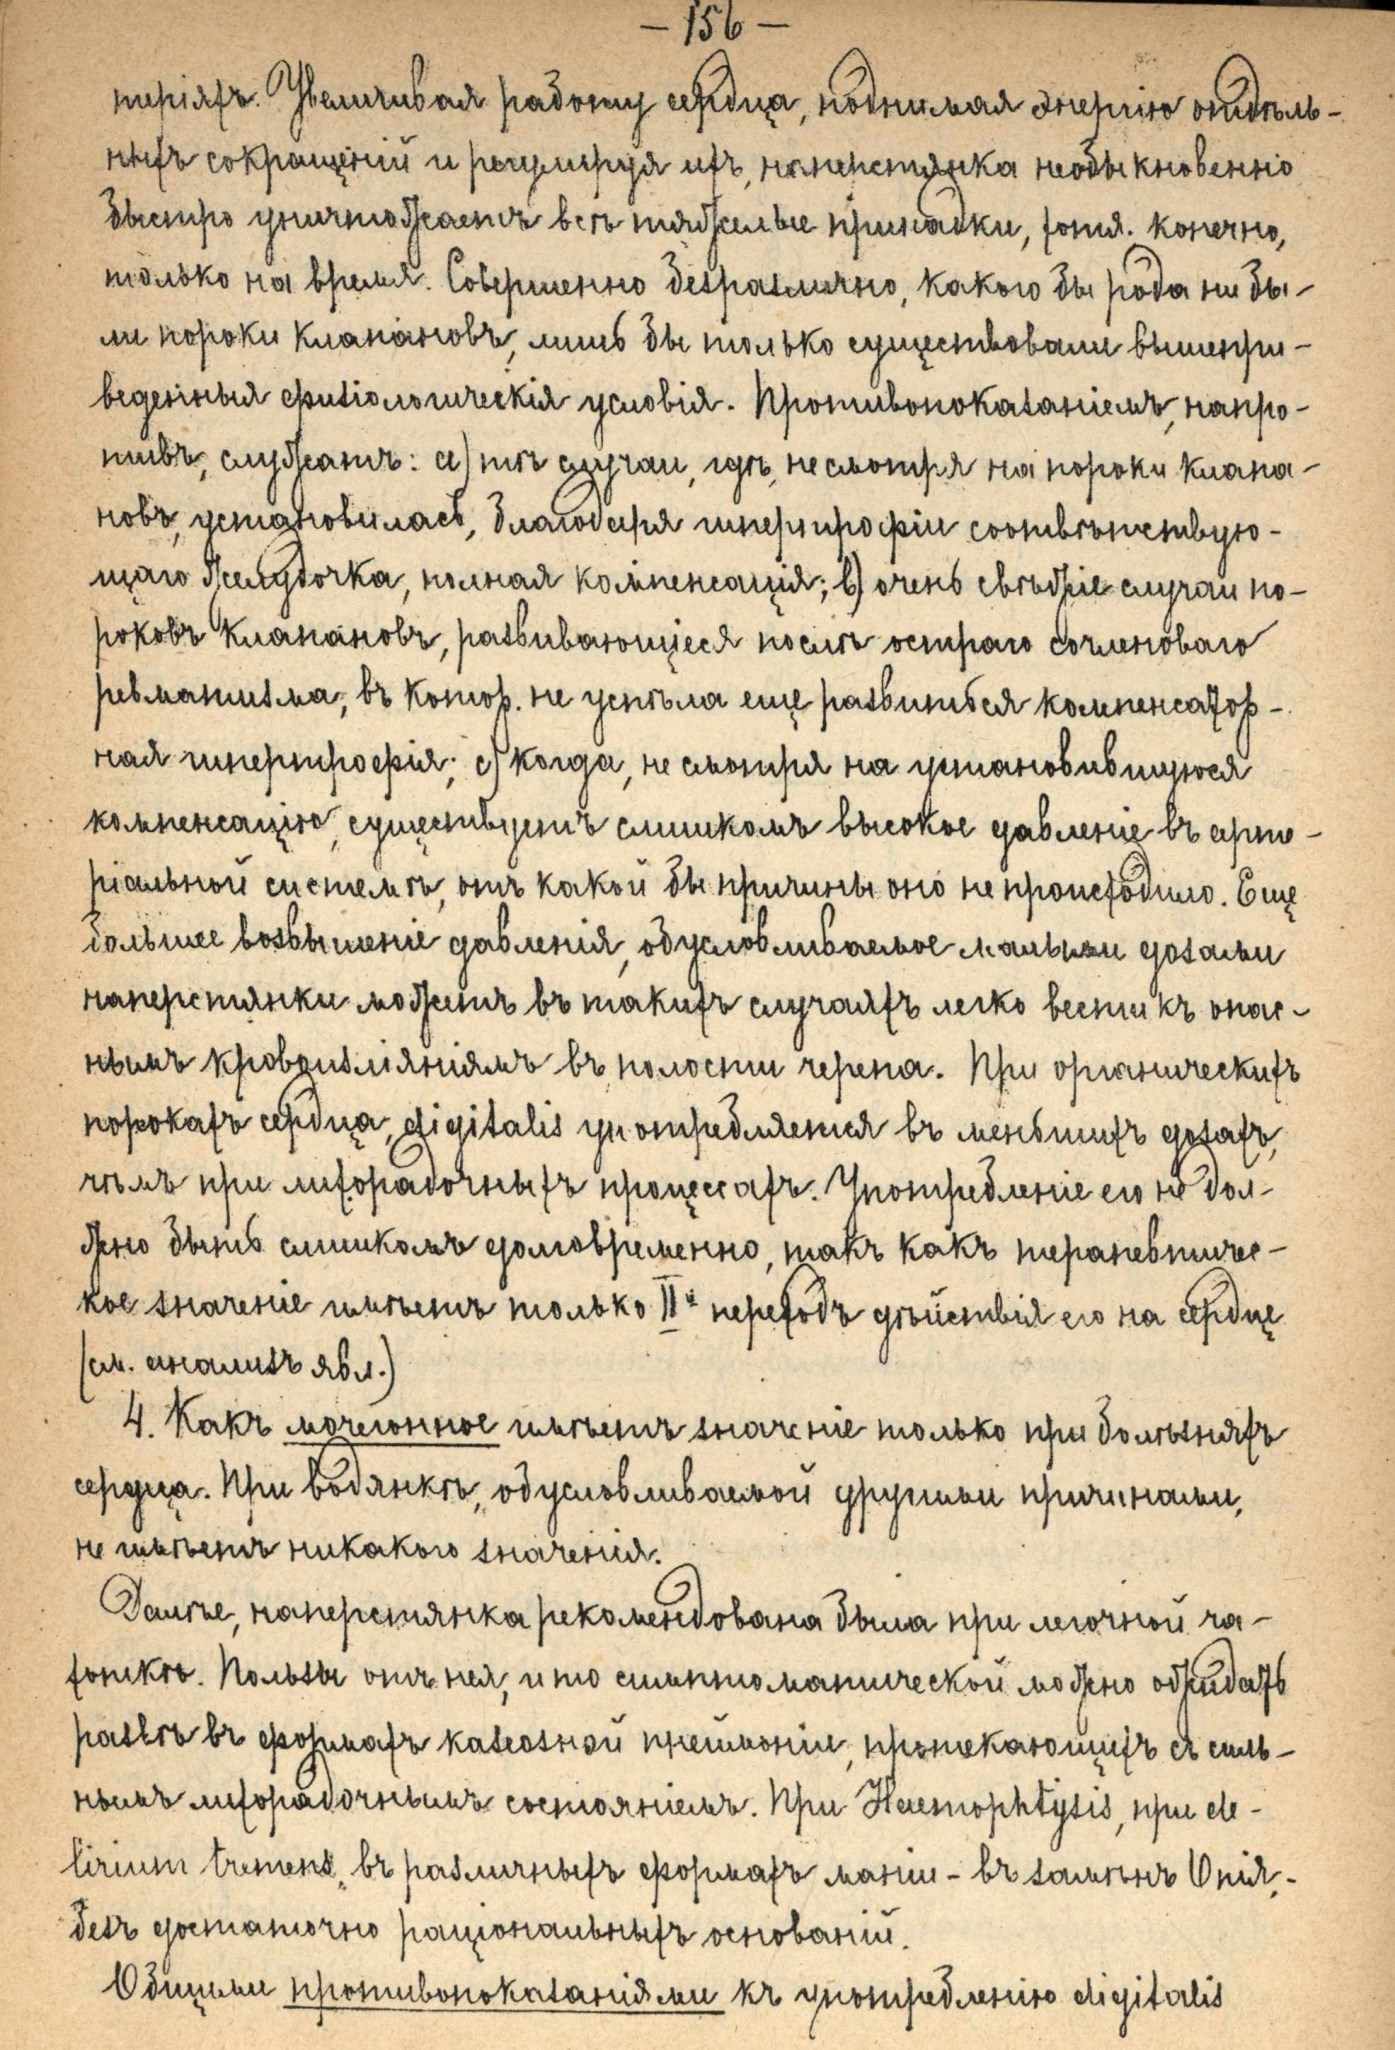 — 156 —
періяхъ. Увеличивая работу сердца, поднимая энергію отдѣль-
ныхъ сокращеній и регулируя ихъ, наперстянка необыкновенно
быстро уничтожаетъ всѣ тяжелые припадки, хотя. конечно,
только на время. Совершенно безразлично, какого бы рода ни бы-
ли пороки клапановъ, лишь бы только существовали вышепри-
веденныя физіологическія условія. Противопоказаніемъ, напро-
тивъ, служатъ: a) тѣ случаи, гдѣ, не смотря на пороки клапа-
новъ, установилась, благодаря гипертрофіи соотвѣтствую-
щаго желудочка, полная компенсація; b) очень свѣжіе случаи по-
роковъ клапановъ, развивающіеся послѣ остраго сочленоваго
ревматизма, въ котор. не успѣла еще развиться компенсатор-
ная гипертрофія; c) когда, не смотря на установившуюся
компенсацію, существуетъ слишкомъ высокое давленіе въ арте-
ріальной системѣ, отъ какой бы причины оно не происходило. Еще
большее возвышеніе давленія, обусловливаемое малыми дозами
наперстянки можетъ въ такихъ случаяхъ легко вести къ опас-
нымъ кровоизліяніямъ въ полости черепа. При органическихъ
порокахъ сердца, digitalis употребляется въ меньшихъ дозахъ,
чѣмъ при лихорадочныхъ процессахъ. Употребленіе его не дол-
жно быть слишкомъ долговременно, такъ какъ терапевтичес-
кое значеніе имѣетъ только IIй переходъ дѣйствія его на сердце
(см. анализъ явл.)
4. Какъ мочегонное имѣетъ значеніе только при болѣзняхъ
сердца. При водянкѣ, обусловливаемой другими причинами,
не имѣетъ никакого значенія.
Далѣе, наперстянка рекомендована была при легочной ча-
хоткѣ. Пользы отъ нея, и то симптоматической можно ожидать
развѣ въ формахъ казеозной пнеймоніи, протекающихъ съ силь-
нымъ лихорадочнымъ состояніемъ. При Haemophtysis, при de-
lirium tremens, въ различныхъ формахъ маніи - въ замѣнъ Опія,-
безъ достаточно раціональныхъ основаній.
Общими противопоказаніями къ употребленію digitalis